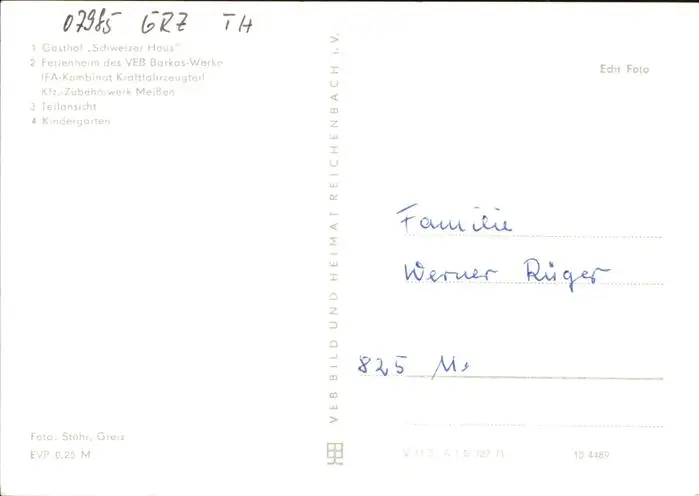 07985 GRZ TH
1 Gasthof „Schweizer Haus"
2 Ferienheim des VEB Barkas-Werke
IFA-Kombinat Kraftfahrzeugteil
Kfz.-Zubehörwerk Meißen
3 Teilansicht
4 Kindergarten
Foto: Stöhr, Greiz
EVP 0,25 M
VEB BILD UND HEIMAT REICHENBACH i. V.
Echt Foto
Familie
Werner Rüger
825 M.
10 4489